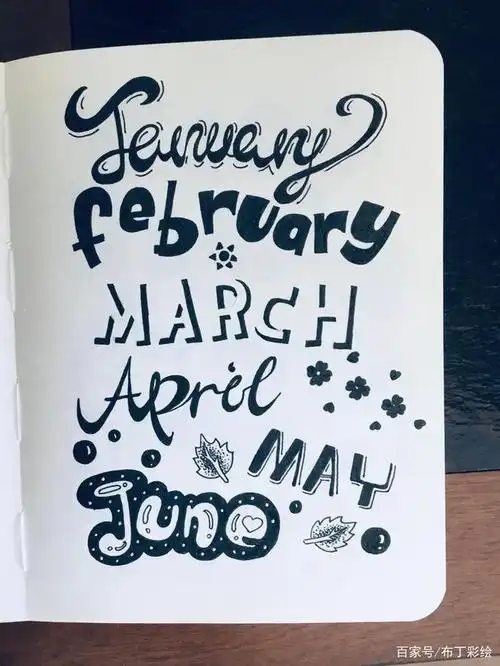 January
february
MARCH
April
MAY
June
百家号/布丁彩绘